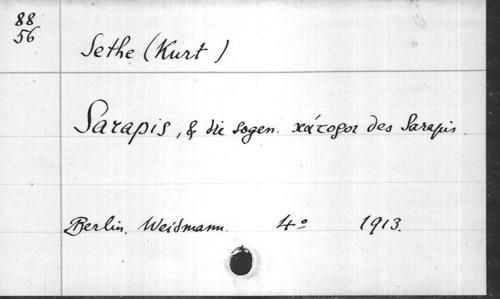 88
56
Sethe (Kurt)
Sarapis, & die sogen. κάτοχοι des Sarapis.
Berlin. Weidmann. 4º 1913.